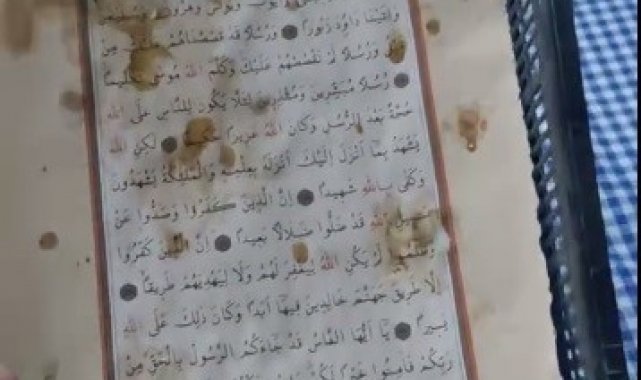 وَيُونُسَ وَهَرُونَ وَسُلَيْمَنَ
وَاتَيْنَا دَاوُدَ زَبُورًا وَرُسُلًا قَدْ قَصَصْنَاهُمْ مِنْ
وَرُسُلًا لَمْ نَقْصُصْهُمْ عَلَيْكَ وَكَلَّمَ اللهُ مُوسَى
رُسُلًا مُبَشِّرِينَ وَمُنْذِرِينَ لِئَلَّا يَكُونَ لِلنَّاسِ عَلَى اللهِ
حُجَّةٌ بَعْدَ الرُّسُلِ وَكَانَ اللهُ عَزِيزًا لَكِنِ اللهُ
يَشْهَدُ بِمَا أَنْزَلَ إِلَيْكَ أَنْزَلَهُ بِعِلْمِهِ وَالْمَلَئِكَةُ يَشْهَدُونَ
وَكَفَى بِاللهِ شَهِيدًا إِنَّ الَّذِينَ كَفَرُوا وَصَدُّوا عَنْ
سَبِيلِ اللهِ قَدْ ضَلُّوا ضَلَالًا بَعِيدًا إِنَّ الَّذِينَ كَفَرُوا
وَظَلَمُوا لَمْ يَكُنِ اللهُ لِيَغْفِرَ لَهُمْ وَلَا لِيَهْدِيَهُمْ طَرِيقًا
إِلَّا طَرِيقَ جَهَنَّمَ خَالِدِينَ فِيهَا أَبَدًا وَكَانَ ذَلِكَ عَلَى اللهِ
يَسِيرًا يَا أَيُّهَا النَّاسُ قَدْ جَاءَكُمُ الرَّسُولُ بِالْحَقِّ مِنْ
رَبِّكُمْ فَآمِنُوا خَيْرًا لَكُمْ